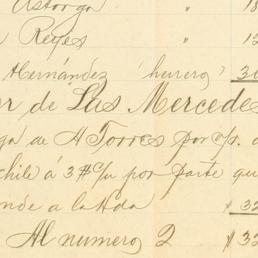 Astorga " 18
Reyes " 12
Hernández herrero 30
de Las Mercedes
de A Torres por c/p.
chile á 3 # c/u por parte que
a la Hda $ 32
Al numero 2 $ 32